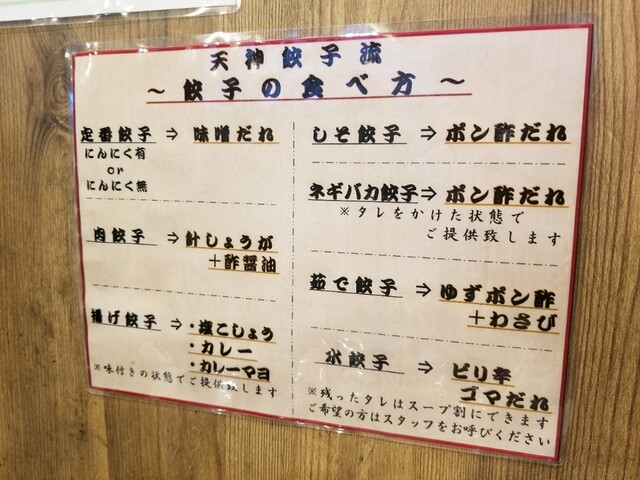 天神餃子流
～餃子の食べ方～
定番餃子⇒味噌だれ
にんにく有
or
にんにく無
肉餃子⇒針しょうが
＋酢醤油
揚げ餃子⇒・塩こしょう
・カレー
・カレーマヨ
※味付きの状態でご提供致します
しそ餃子⇒ポン酢だれ
ネギバカ餃子⇒ポン酢だれ
※タレをかけた状態で
ご提供致します
茹で餃子⇒ゆずポン酢
＋わさび
水餃子⇒ピリ辛
ゴマだれ
※残ったタレはスープ割にできます
ご希望の方はスタッフをお呼びください